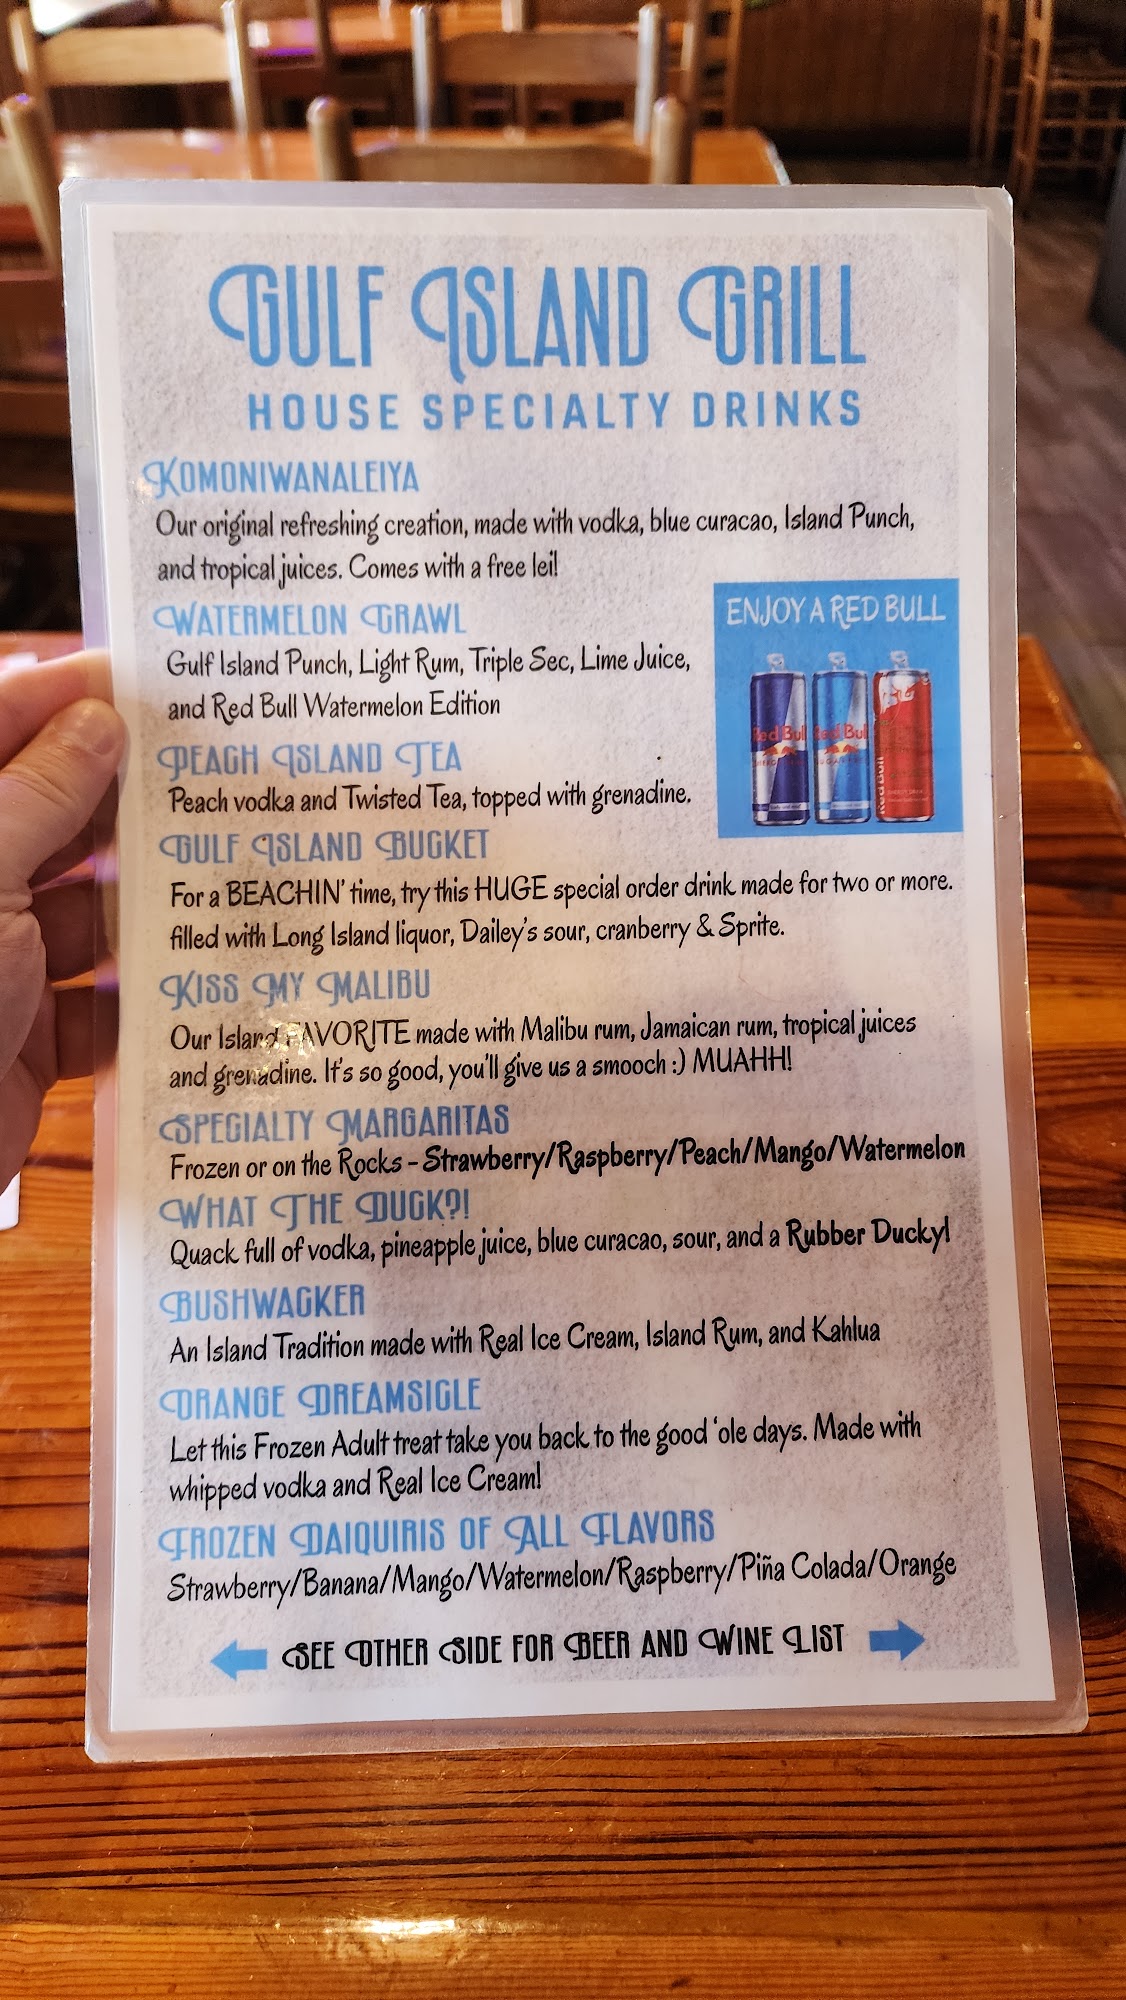 GULF ISLAND GRILL
HOUSE SPECIALTY DRINKS
KOMONIWANALEIYA
Our original refreshing creation, made with vodka, blue curacao, Island Punch,
and tropical juices. Comes with a free lei!
WATERMELON CRAWL
Gulf Island Punch, Light Rum, Triple Sec, Lime Juice,
and Red Bull Watermelon Edition
ENJOY A RED BULL
Red Bull
Red Bull
Red Bull
PEACH ISLAND TEA
Peach vodka and Twisted Tea, topped with grenadine.
GULF ISLAND BUCKET
For a BEACHIN' time, try this HUGE special order drink made for two or more.
filled with Long Island liquor, Dailey's sour, cranberry & Sprite.
KISS MY MALIBU
Our Island FAVORITE made with Malibu rum, Jamaican rum, tropical juices
and grenadine. It's so good, you'll give us a smooch :) MUAHH!
SPECIALTY MARGARITAS
Frozen or on the Rocks - Strawberry/Raspberry/Peach/Mango/Watermelon
WHAT THE DUCK?!
Quack full of vodka, pineapple juice, blue curacao, sour, and a Rubber Ducky!
BUSHWACKER
An Island Tradition made with Real Ice Cream, Island Rum, and Kahlua
ORANGE DREAMSICLE
Let this Frozen Adult treat take you back to the good 'ole days. Made with
whipped vodka and Real Ice Cream!
FROZEN DAIQUIRIS OF ALL FLAVORS
Strawberry/Banana/Mango/Watermelon/Raspberry/Piña Colada/Orange
SEE OTHER SIDE FOR BEER AND WINE LIST